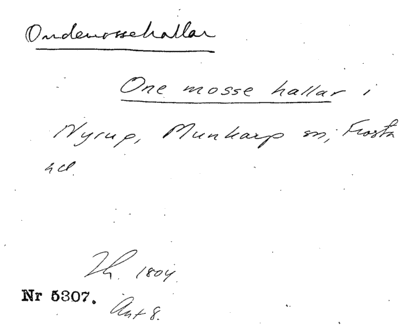 Ondemossehallar
One mosse hallar i
Nyrup, Munkarp sn, Frosta
hd.
Th. 1804.
Nr 5307.
Ant 8.